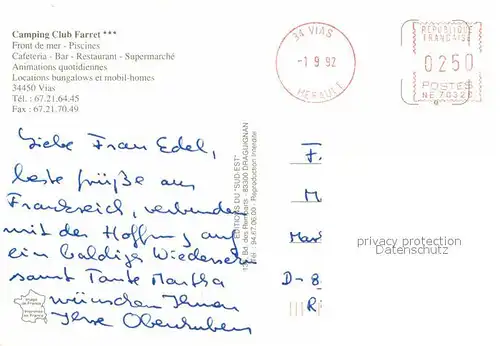 Camping Club Farret ***
Front de mer - Piscines
Cafeteria - Bar - Restaurant - Supermarché
Animations quotidiennes
Locations bungalows et mobil-homes
34450 Vias
Tél. : 67.21.64.45
Fax : 67.21.70.49
34 VIAS
-1 9 92
HERAULT
REPUBLIQUE
FRANCAISE
0250
POSTES
NE 70320
Liebe Frau Edel,
beste Grüße aus
Frankreich, verbunden
mit der Hoffnung auf
ein baldiges Wiedersehn
samt Tante Martha
wünschen Ihnen
Ilse
EDITIONS DU "SUD-EST"
Bd. des Remparts - 83300 DRAGUIGNAN
Tél. : 94.67.06.00 - Reproduction interdite
F.
M
Mar
D-8
R
privacy protection
Datenschutz
Image
de France
Imprimée
en France